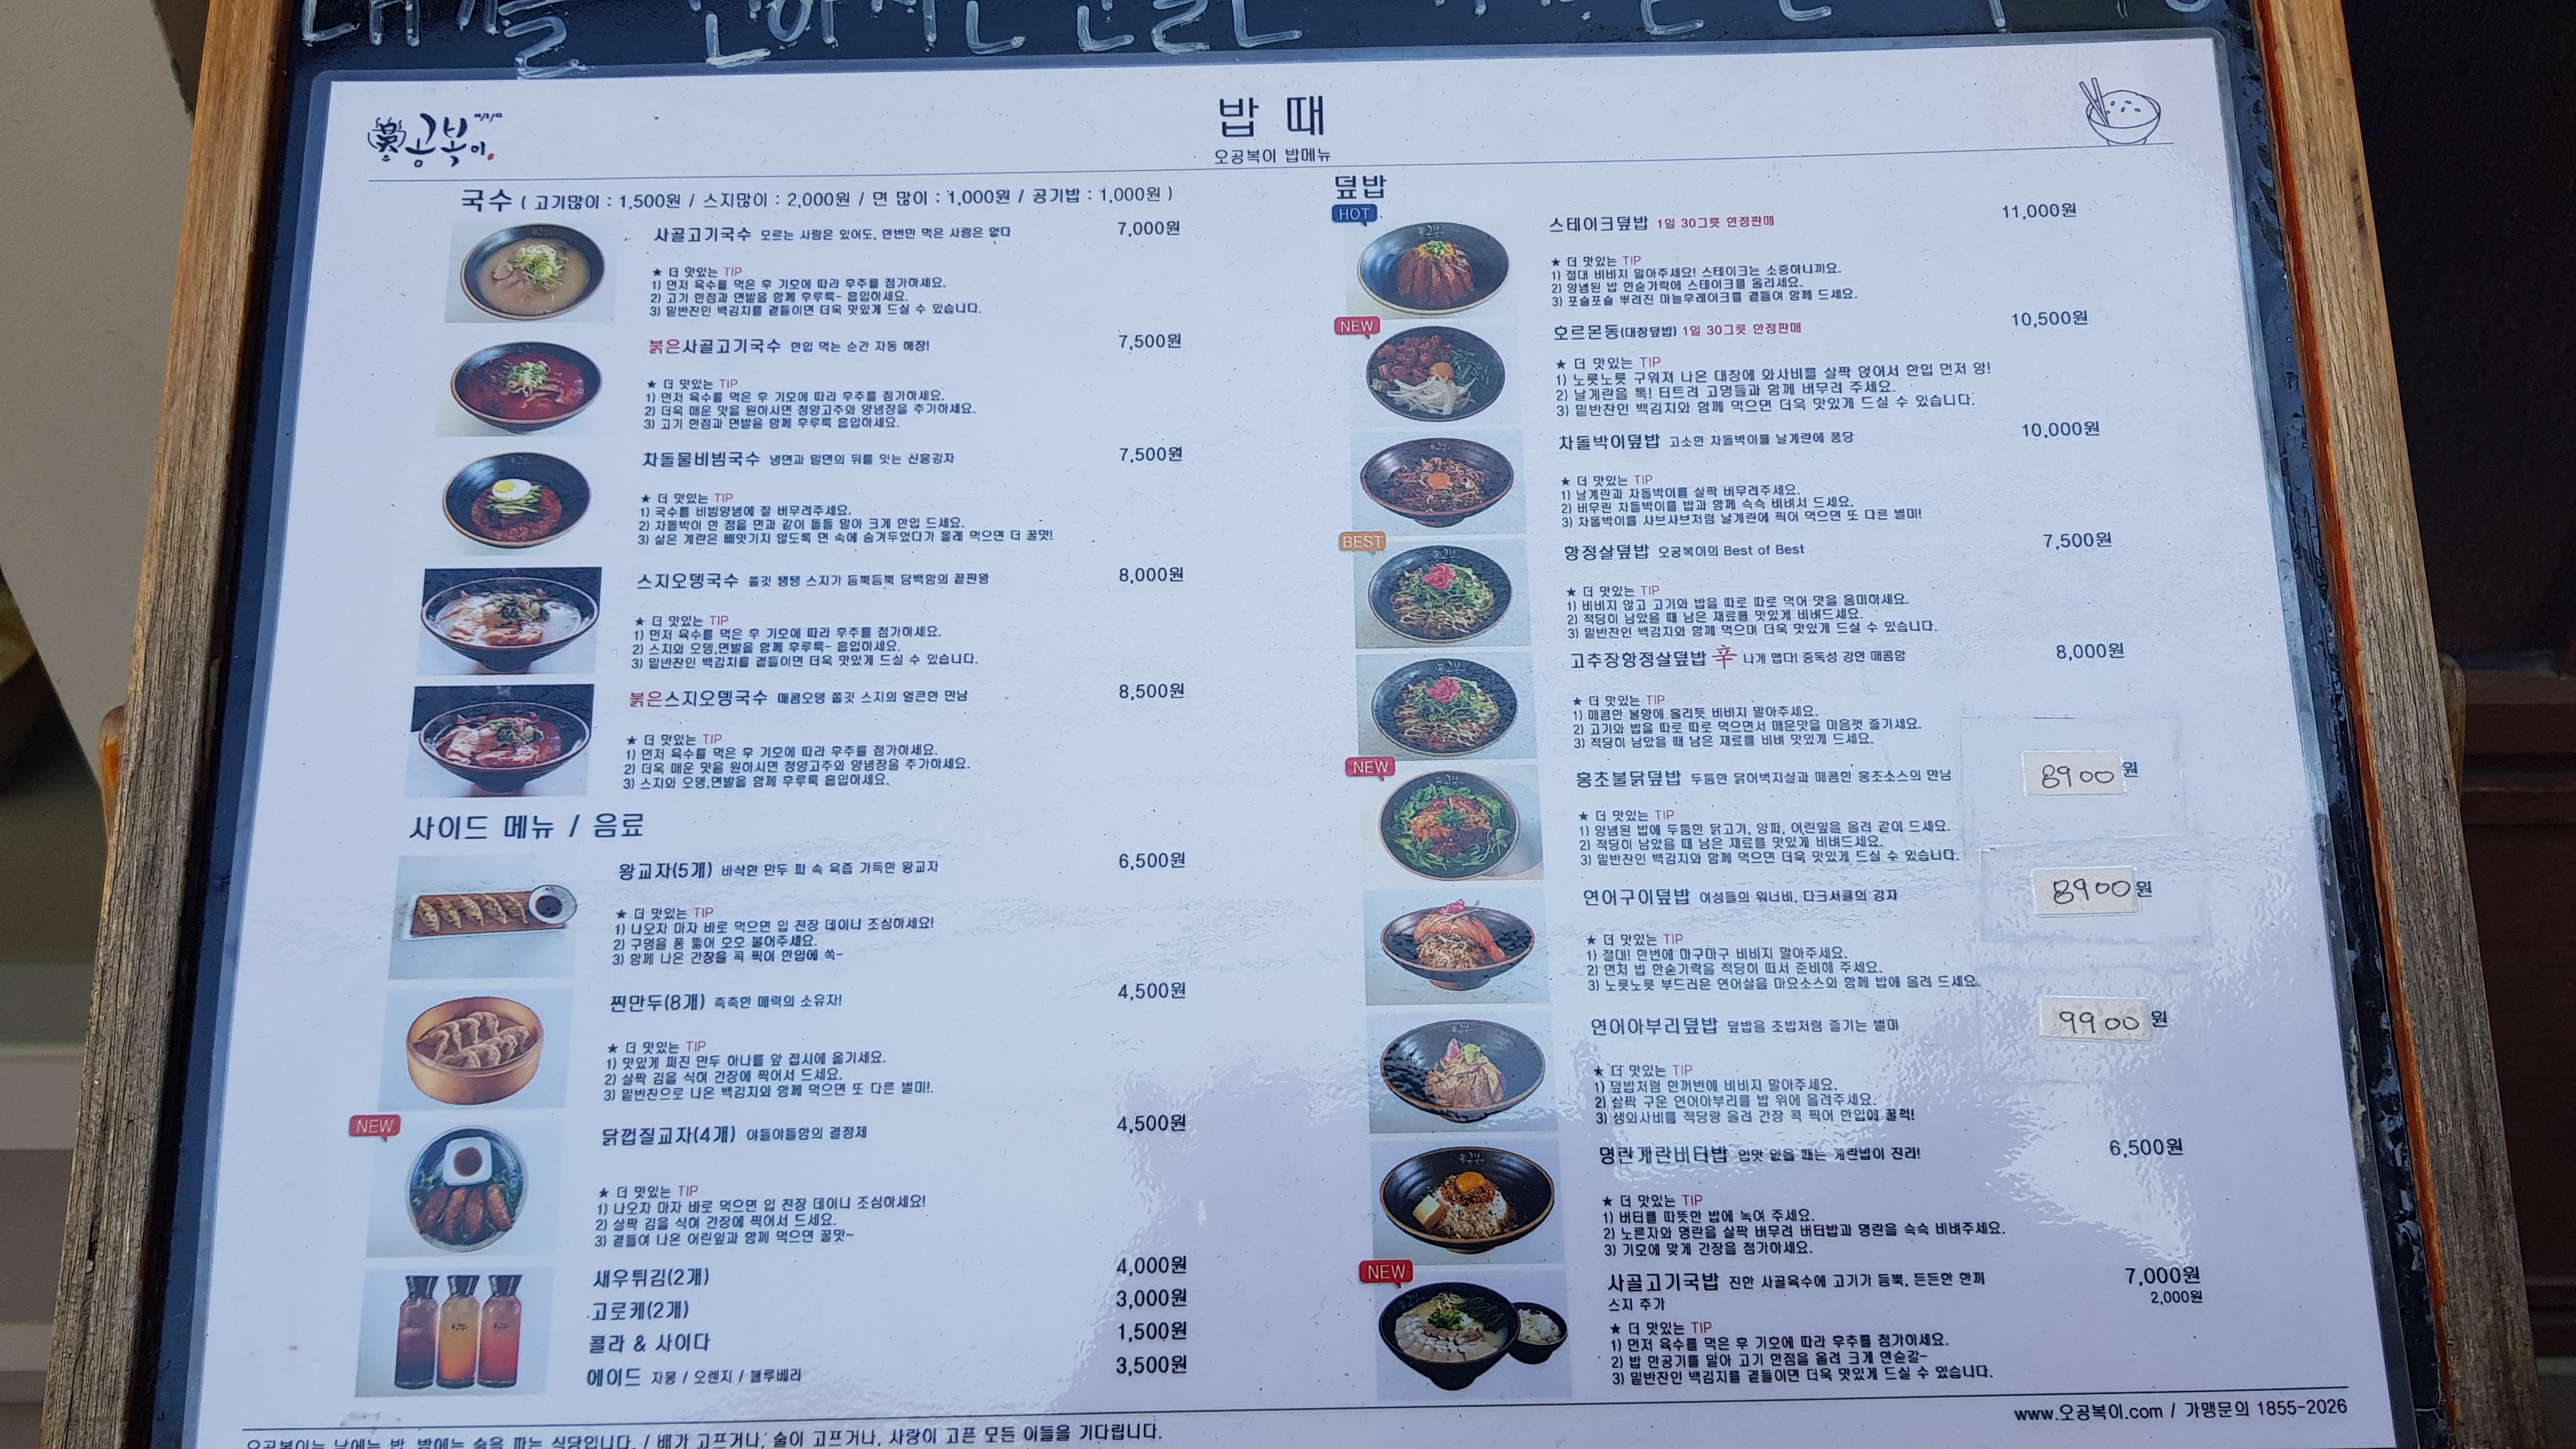 공복이
밥 때
오공복이 밥메뉴
국수 ( 고기많이 : 1,500원 / 스지많이 : 2,000원 / 면 많이 : 1,000원 / 공기밥 : 1,000원 )
사골고기국수 모르는 사람은 있어도, 한번만 먹은 사람은 없다 7,000원
★ 더 맛있는 TIP
1) 먼저 육수를 먹은 후 기호에 따라 후추를 첨가하세요.
2) 고기 한점과 면발을 함께 후루룩~ 흡입하세요.
3) 밑반찬인 백김치를 곁들이면 더욱 맛있게 드실 수 있습니다.
붉은사골고기국수 한입 먹는 순간 자동 해장! 7,500원
★ 더 맛있는 TIP
1) 먼저 육수를 먹은 후 기호에 따라 후추를 첨가하세요.
2) 더욱 매운 맛을 원하시면 청양고추와 양념장을 추가하세요.
3) 고기 한점과 면발을 함께 후루룩 흡입하세요.
차돌물비빔국수 냉면과 밀면의 뒤를 잇는 신흥강자 7,500원
★ 더 맛있는 TIP
1) 국수를 비빔양념에 잘 버무려주세요.
2) 차돌박이 한 점을 면과 같이 돌돌 말아 크게 한입 드세요.
3) 삶은 계란은 빼앗기지 않도록 면 속에 숨겨두었다가 몰래 먹으면 더 꿀맛!
스지오뎅국수 쫄깃 탱탱 스지가 듬뿍듬뿍 담백함의 끝판왕 8,000원
★ 더 맛있는 TIP
1) 먼저 육수를 먹은 후 기호에 따라 후추를 첨가하세요.
2) 스지와 오뎅,면발을 함께 후루룩~ 흡입하세요.
3) 밑반찬인 백김치를 곁들이면 더욱 맛있게 드실 수 있습니다.
붉은스지오뎅국수 매콤오뎅 쫄깃 스지의 얼큰한 만남 8,500원
★ 더 맛있는 TIP
1) 먼저 육수를 먹은 후 기호에 따라 후추를 첨가하세요.
2) 더욱 매운 맛을 원하시면 청양고추와 양념장을 추가하세요.
3) 스지와 오뎅,면발을 함께 후루룩 흡입하세요.
사이드 메뉴 / 음료
왕교자(5개) 바삭한 만두 피 속 육즙 가득한 왕교자 6,500원
★ 더 맛있는 TIP
1) 나오자 마자 바로 먹으면 입 천장 데이니 조심하세요!
2) 구멍을 퐁 뚫어 호호 불어주세요.
3) 함께 나온 간장을 콕 찍어 한입에 쏙~
찐만두(8개) 촉촉한 매력의 소유자! 4,500원
★ 더 맛있는 TIP
1) 맛있게 쪄진 만두 하나를 앞 접시에 옮기세요.
2) 살짝 김을 식혀 간장에 찍어서 드세요.
3) 밑반찬으로 나온 백김치와 함께 먹으면 또 다른 별미!.
NEW
닭껍질교자(4개) 야들야들함의 결정체 4,500원
★ 더 맛있는 TIP
1) 나오자 마자 바로 먹으면 입 천장 데이니 조심하세요!
2) 살짝 김을 식혀 간장에 찍어서 드세요.
3) 곁들여 나온 어린잎과 함께 먹으면 꿀맛~
새우튀김(2개) 4,000원
고로케(2개) 3,000원
콜라 & 사이다 1,500원
에이드 자몽 / 오렌지 / 블루베리 3,500원
덮밥
HOT
스테이크덮밥 1일 30그릇 한정판매 11,000원
★ 더 맛있는 TIP
1) 절대 비비지 말아주세요! 스테이크는 소중하니까요.
2) 양념된 밥 한숟가락에 스테이크를 올리세요.
3) 포슬포슬 뿌려진 마늘후레이크를 곁들여 함께 드세요.
NEW
호르몬동(대창덮밥) 1일 30그릇 한정판매 10,500원
★ 더 맛있는 TIP
1) 노릇노릇 구워져 나온 대창에 와사비를 살짝 얹어서 한입 먼저 앙!
2) 날계란을 톡! 터트려 고명들과 함께 버무려 주세요.
3) 밑반찬인 백김치와 함께 먹으면 더욱 맛있게 드실 수 있습니다.
차돌박이덮밥 고소한 차돌박이를 날계란에 퐁당 10,000원
★ 더 맛있는 TIP
1) 날계란과 차돌박이를 살짝 버무려주세요.
2) 버무린 차돌박이를 밥과 함께 슥슥 비벼서 드세요.
3) 차돌박이를 샤브샤브처럼 날계란에 찍어 먹으면 또 다른 별미!
BEST
항정살덮밥 오공복이의 Best of Best 7,500원
★ 더 맛있는 TIP
1) 비비지 않고 고기와 밥을 따로 따로 먹어 맛을 음미하세요.
2) 적당히 남았을 때 남은 재료를 맛있게 비벼드세요.
3) 밑반찬인 백김치와 함께 먹으며 더욱 맛있게 드실 수 있습니다.
고추장항정살덮밥 辛 나게 맵다! 중독성 강한 매콤함 8,000원
★ 더 맛있는 TIP
1) 매콤한 불향에 홀리듯 비비지 말아주세요.
2) 고기와 밥을 따로 따로 먹으면서 매운맛을 마음껏 즐기세요.
3) 적당히 남았을 때 남은 재료를 비벼 맛있게 드세요.
NEW
홍초불닭덮밥 두툼한 닭허벅지살과 매콤한 홍초소스의 만남 8900원
★ 더 맛있는 TIP
1) 양념된 밥에 두툼한 닭고기, 양파, 어린잎을 올려 같이 드세요.
2) 적당히 남았을 때 남은 재료를 맛있게 비벼드세요.
3) 밑반찬인 백김치와 함께 먹으면 더욱 맛있게 드실 수 있습니다.
연어구이덮밥 여성들의 워너비, 다크서클의 강자 8900원
★ 더 맛있는 TIP
1) 절대! 한번에 마구마구 비비지 말아주세요.
2) 먼저 밥 한숟가락을 적당히 떠서 준비해 주세요.
3) 노릇노릇 부드러운 연어살을 마요소스와 함께 밥에 올려 드세요.
연어아부리덮밥 덮밥을 초밥처럼 즐기는 별미 9900원
★ 더 맛있는 TIP
1) 덮밥처럼 한꺼번에 비비지 말아주세요.
2) 살짝 구운 연어아부리를 밥 위에 올려주세요.
3) 생와사비를 적당량 올려 간장 콕 찍어 한입에 꿀꺽!
명란계란버터밥 입맛 없을 때는 계란밥이 진리! 6,500원
★ 더 맛있는 TIP
1) 버터를 따뜻한 밥에 녹여 주세요.
2) 노른자와 명란을 살짝 버무려 버터밥과 명란을 슥슥 비벼주세요.
3) 기호에 맞게 간장을 첨가하세요.
NEW
사골고기국밥 진한 사골육수에 고기가 듬뿍, 든든한 한끼 7,000원
스지 추가 2,000원
★ 더 맛있는 TIP
1) 먼저 육수를 먹은 후 기호에 따라 후추를 첨가하세요.
2) 밥 한공기를 말아 고기 한점을 올려 크게 한숟갈~
3) 밑반찬인 백김치를 곁들이면 더욱 맛있게 드실 수 있습니다.
www.오공복이.com / 가맹문의 1855-2026
오공복이는 낮에는 밥, 밤에는 술을 파는 식당입니다. / 배가 고프거나, 술이 고프거나, 사랑이 고픈 모든 이들을 기다립니다.